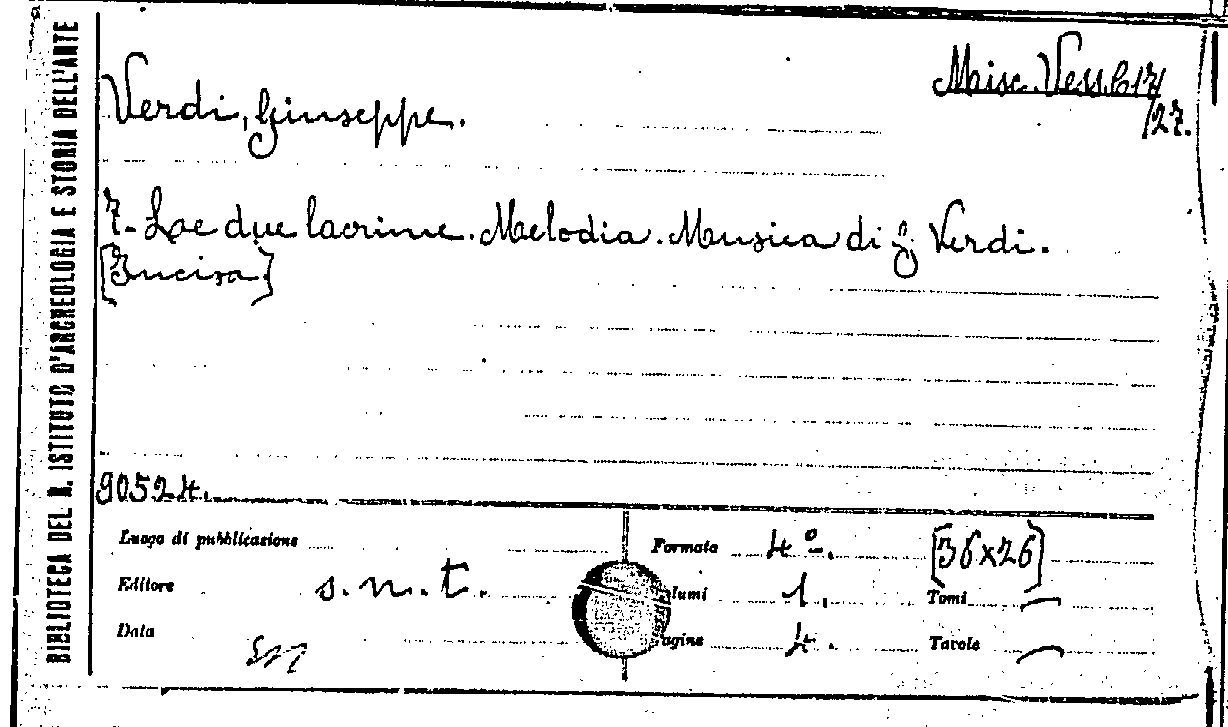 BIBLIOTECA DEL R. ISTITUTO D'ARCHEOLOGIA E STORIA DELL'ARTE
Misc. Vess. b 17/
27.
Verdi, Giuseppe.
7- Le due lacrime. Melodia. Musica di G. Verdi.
[Incisa]
90524.
Luogo di pubblicazione
Formato 4º. [36x26]
Editore s.n.t. lumi 1. Tomi —
Data agine 4. Tavole —